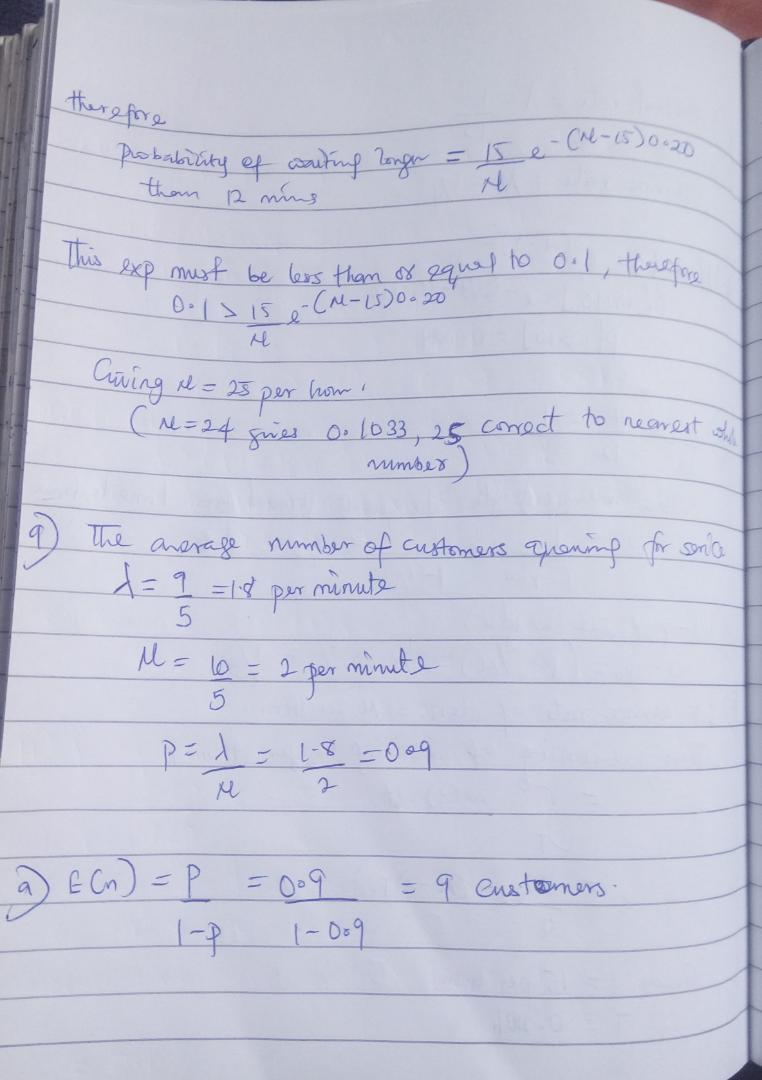 therefore
Probability of waiting longer = 15/μ e^-(μ-15)0.20
than 12 mins
This exp must be less than or equal to 0.1, therefore
0.1 > 15/μ e^-(μ-15)0.20
Giving μ = 25 per hour.
(μ=24 gives 0.1033, 25 correct to nearest
number)
9) The average number of customers for
λ = 9/5 = 1.8 per minute
μ = 10/5 = 2 per minute
P = λ/μ = 1.8/2 = 0.9
a) E(n) = P/1-p = 0.9/1-0.9 = 9 customers.